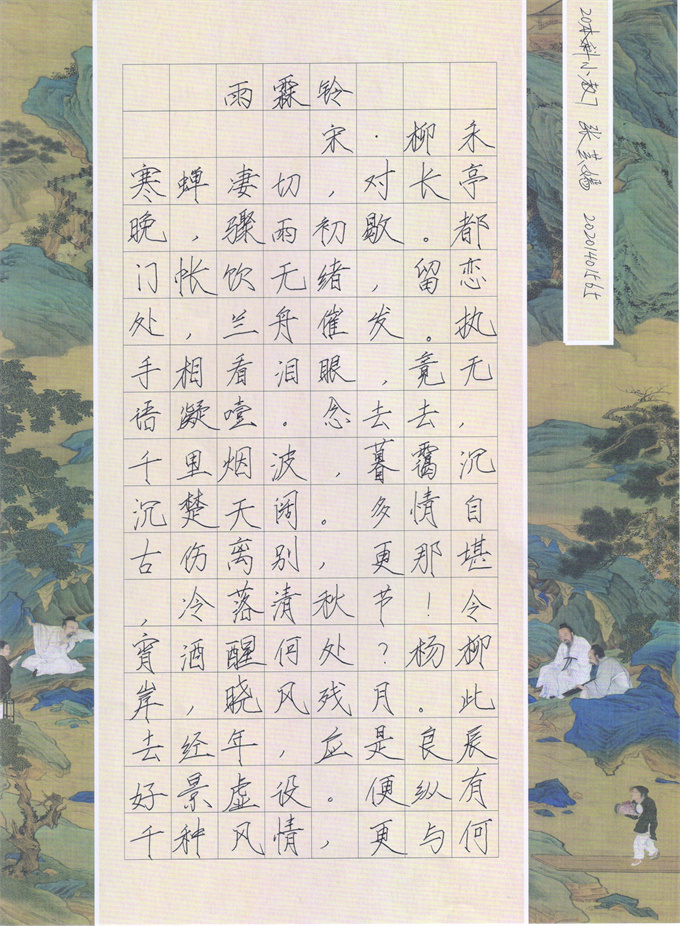 雨霖铃
宋·柳永
寒蝉凄切,对长亭
晚,骤雨初歇。都
门帐饮无绪,留恋
处,兰舟催发。执
手相看泪眼,竟无
语凝噎。念去去,
千里烟波,暮霭沉
沉楚天阔。多情自
古伤离别,更那堪
,冷落清秋节!今
宵酒醒何处?杨柳
岸,晓风残月。此
去经年,应是良辰
好景虚设。便纵有
千种风情,更与何
20本科小教7 张